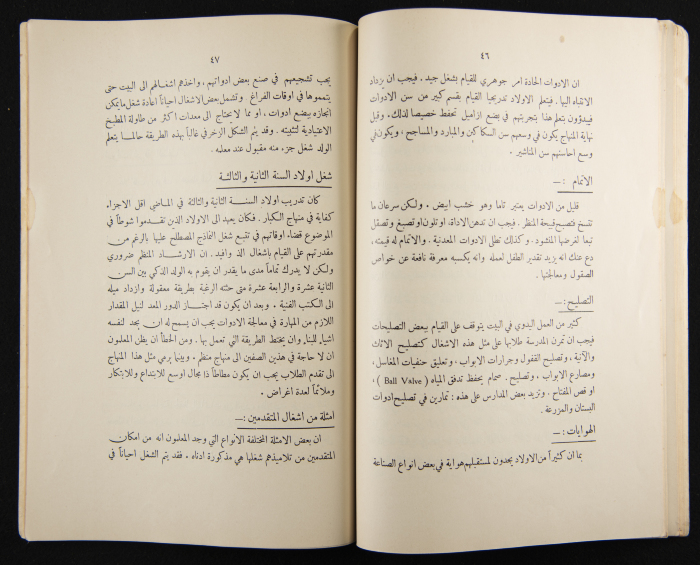 ٤٦
ان الادوات الحادة امر جوهري للقيام بشغل جيد . فيجب ان يزداد
الانتباه اليها . فيتعلم الاولاد تدريجيا القيام بقسم كبير من سن الادوات
فيبدؤون بتعلم هذا بتجربتهم في بضع ازاميل تحفظ خصيصا لذلك . وقبل
نهاية المنهاج يكون في وسعهم سن السكاكين والمبارد والمساحج ، ويكون في
وسع احاسنهم سن المناشير .
الاتمام : —
قليل من الادوات يعتبر تاما وهو خشب ابيض . ولكن سرعان ما
تتسخ فتصبح قبيحة المنظر . فيجب ان تدهن الاداة، او تلون او تصبغ وتصقل
تبعا لغرضها المنشود . وكذلك تطلى الادوات المعدنية . والاتمام له قيمته ،
دع عنك انه يزيد تقدير الطفل لعمله وانه يكسبه معرفة نافعة عن خواص
الصقول ومعالجتها .
التصليح : —
كثير من العمل اليدوي في البيت يتوقف على القيام ببعض التصليحات
فيجب ان تمرن المدرسة طلابها على مثل هذه الاشغال كتصليح الاثاث
والآنية ، وتصليح القفول وجرارات الابواب ، وتعليق حنفيات المغاسل ،
ومصارع الابواب ، وتصليح . صمام يحفظ تدفق المياه ( Ball Valve ) ،
او قص المفتاح . وتزيد بعض المدارس على هذه : تمارين في تصليح ادوات
البستان والمزرعة .
الهوايات : —
بما ان كثيرا من الاولاد يجدون لمستقبلهم هواية في بعض انواع الصناعة
٤٧
يجب تشجيعهم في صنع بعض ادواتهم . واخذهم اشغالهم الى البيت حتى
يتمموها في اوقات الفراغ . وتشمل بعض الاشغال احيانا اعادة شغل ما يمكن
انجازه ببضع ادوات ، او مما لا يحتاج الى معدات اكثر من طاولة المطبخ
الاعتيادية لتثبيته . وقد يتم الشكل الزخرفي غالبا بهذه الطريقة حالما يتعلم
الولد شغل جزء منه مقبول عند معلمه .
شغل اولاد السنة الثانية والثالثة
كان تدريب اولاد السنة الثانية والثالثة في الماضي اقل الاجزاء
كفاية في منهاج الكبار . فكان يعهد الى الاولاد الذين تقدموا شوطاً في
الموضوع قضاء اوقاتهم في تتبع شغل النماذج المصطلح عليها بالرغم من
مقدرتهم على القيام باشغال الذ وافيد . ان الارشاد المنظم ضروري
ولكن لا يدرك تماماً مدى ما يقدر ان يقوم به الولد الذكي بين السن
الثانية عشرة والرابعة عشرة متى حثته الرغبة بطريقة معقولة وازداد ميله
الى الكتب الفنية . وبعد ان يكون قد اجتاز الدور المعد لنيل المقدار
اللازم من المهارة في معالجة الادوات يجب ان يسمح له ان يجد لنفسه
اشياء للبناء وان يختط الطريقة التي تعمل بها . ومن الخطأ ان يظن المعلمون
ان لا حاجة في هذين الصفين الى منهاج منظم . وبينما يرمي مثل هذا المنهاج
الى تقدم الطلاب يجب ان يكون مطاطاً ذا مجال اوسع للابتداع وللابتكار
وملائماً لعدة اغراض .
امثلة من اشغال المتقدمين : —
ان بعض الامثلة المختلفة الانواع التي وجد المعلمون انه من امكان
المتقدمين من تلاميذهم شغلها هي مذكورة ادناه . فقد يتم الشغل احيانا في